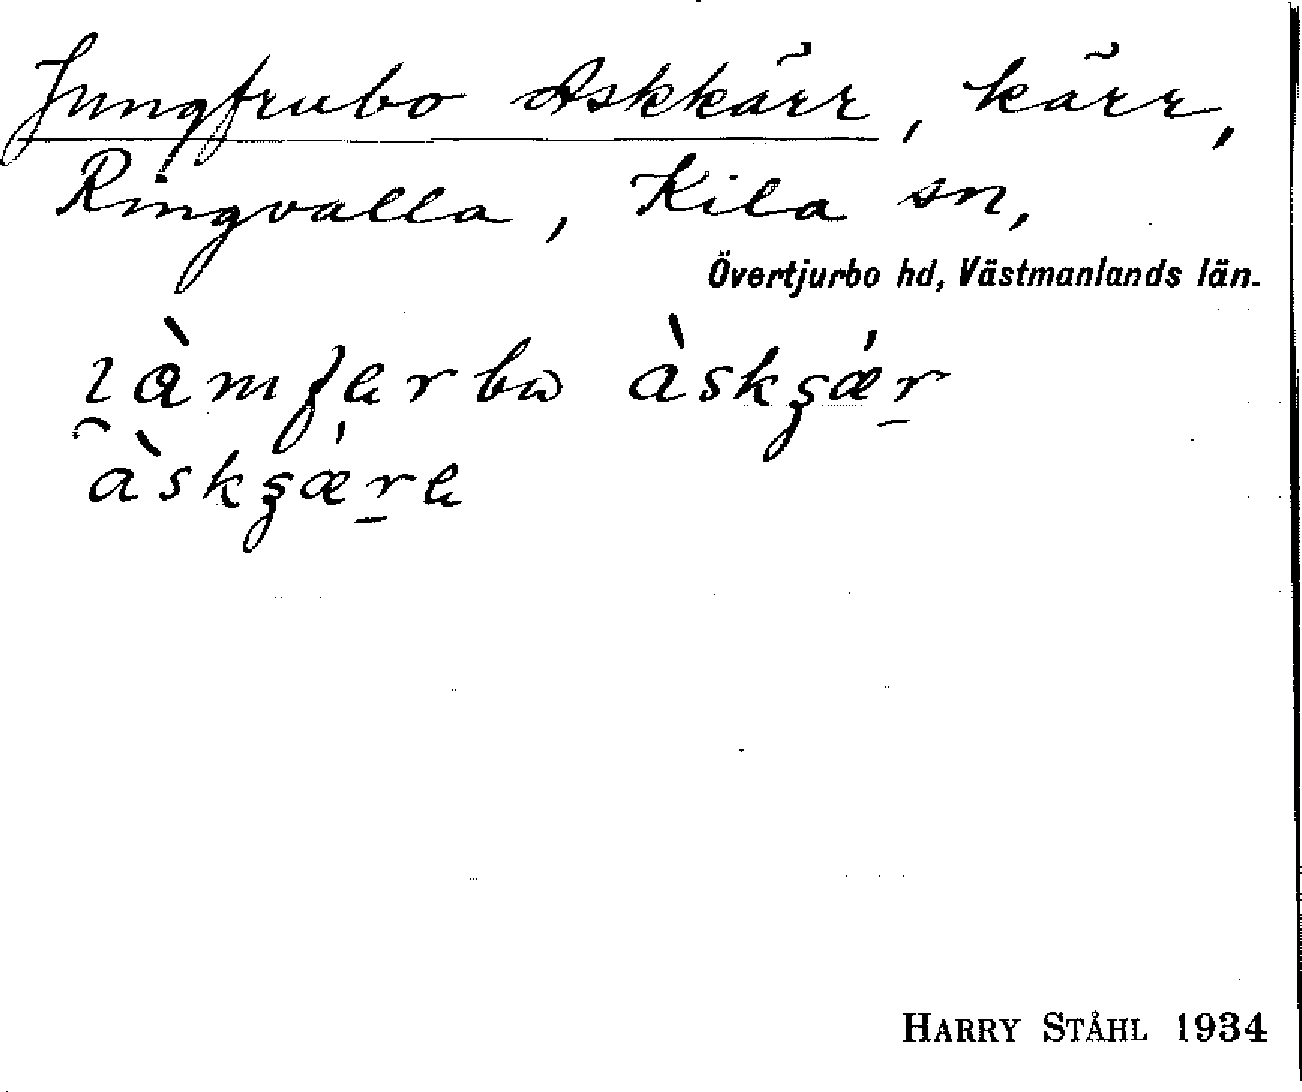 Jungfrubo Askkärr, kärr,
Ringvalla, Kila sn,
Övertjurbo hd, Västmanlands län.
HARRY STÅHL 1934